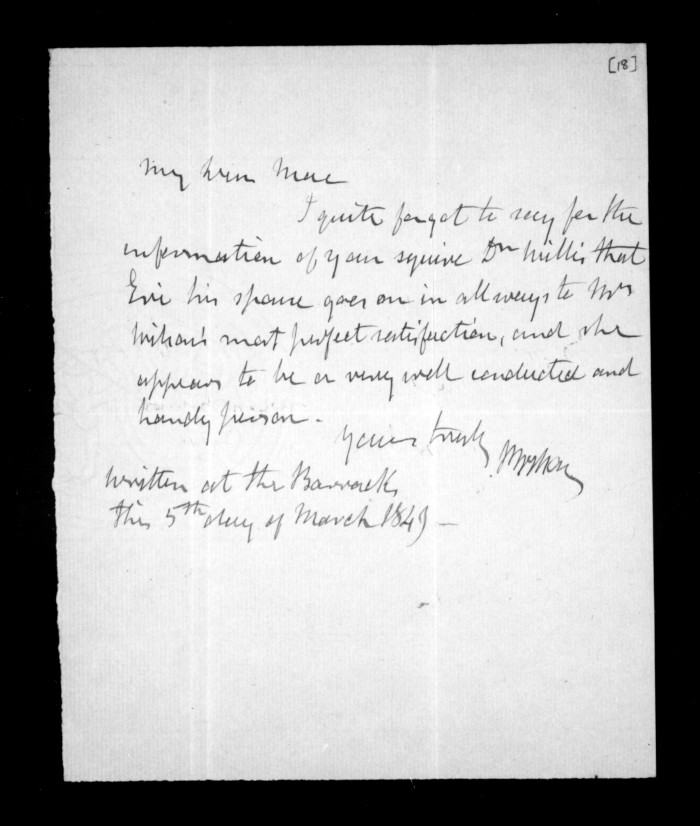 [18]
My dear Mac
I quite forgot to say for the
information of your squire Dn Millis that
Evie his spouse goes on in all ways to Mrs
Wilson's most perfect satisfaction, and she
appears to be a very well conducted and
handy person.
Yours truly
written at the Barracks
this 5th day of March 1849 –